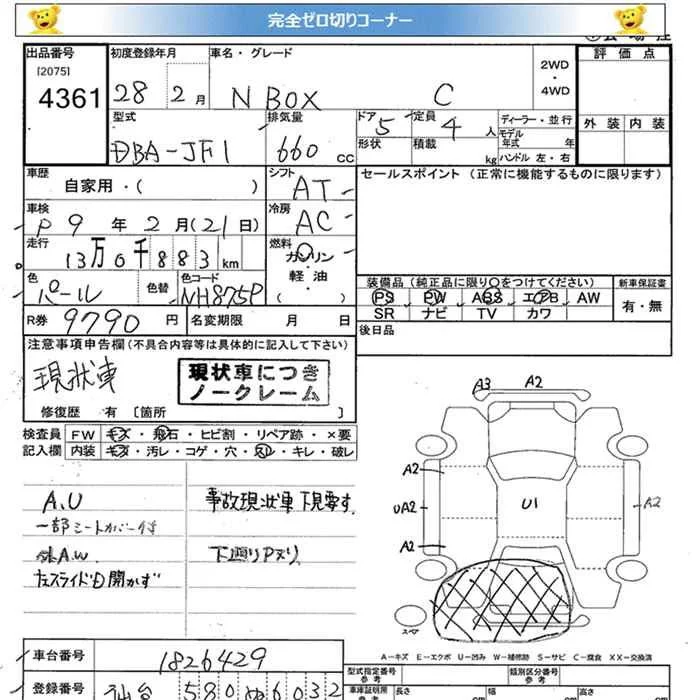 完全ゼロ切りコーナー
出品番号
[2075]
4361
初度登録年月
28 2月
車名・グレード
N BOX C
2WD
・
4WD
評価点
外装 内装
型式
DBA-JF1
排気量
660 CC
ドア 5
形状
定員 4 人
積載 kg
ディーラー・並行
モデル
年式 年
ハンドル 左・右
車歴
自家用・( )
シフト
AT
セールスポイント (正常に機能するものに限ります)
車検
P 9 年 2 月 (21 日)
冷房
AC
走行
13万0千883 km
燃料
ガソリン
軽・油
( )
色
パール
色替
色コード
NH875P
装備品 (純正品に限り○をつけてください)
PS PW ABS エアB AW
SR ナビ TV カワ
新車保証書
有・無
R券 9790 円
名変期限 月 日
後日品
注意事項申告欄 (不具合内容等は具体的に記入して下さい)
現状車
現状車につき
ノークレーム
修復歴 有 [箇所 ]
検査員
記入欄
FW キズ・飛石・ヒビ割・リペア跡・×要
内装 キズ・汚レ・コゲ・穴・スレ・キレ・破レ
A.U
一部シートカバー付
A.W
左スライドD開かず
事故現状車下見要す
下廻りPヌリ
A3 A2
A2
UA2
A2
U1
A2
スペア
A−キズ E−エクボ U−凹み W−補修跡 S−サビ C−腐食 XX−交換済
車台番号
1826429
登録番号
仙台 580 ぬ 6032
型式指定番号
参考
類別区分番号
参考
車庫証明用
参考
長さ cm
幅 cm
高さ cm